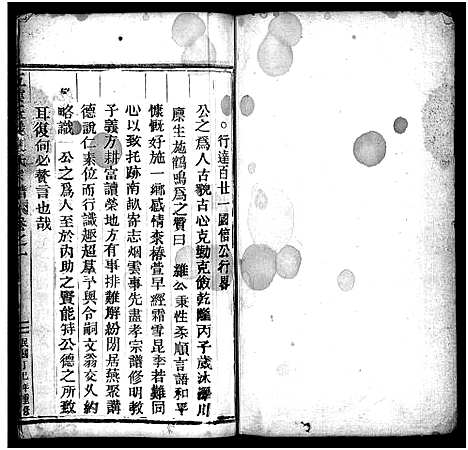 ○行達百廿一國倍公行畧
公之爲人古貌古心克勤克儉乾隆丙子歲冰澤川
廩生施鶴鳴爲之贊曰 維公秉性柔順言語和平
慷慨好施一鄉感情柰椿萱早經霜雪昆李若難同
心以致托跡南畝寄志烟雲事先盡孝宗譜修明教
子義方耕富讀榮地方有事排難解紛閒居燕聚講
德說仁素位而行識趣超羣予與令嗣文翁交久約
略識 公之爲人至於內助之賢能特公德之所致
耳復何必贅言也哉
民國丁巳年重修